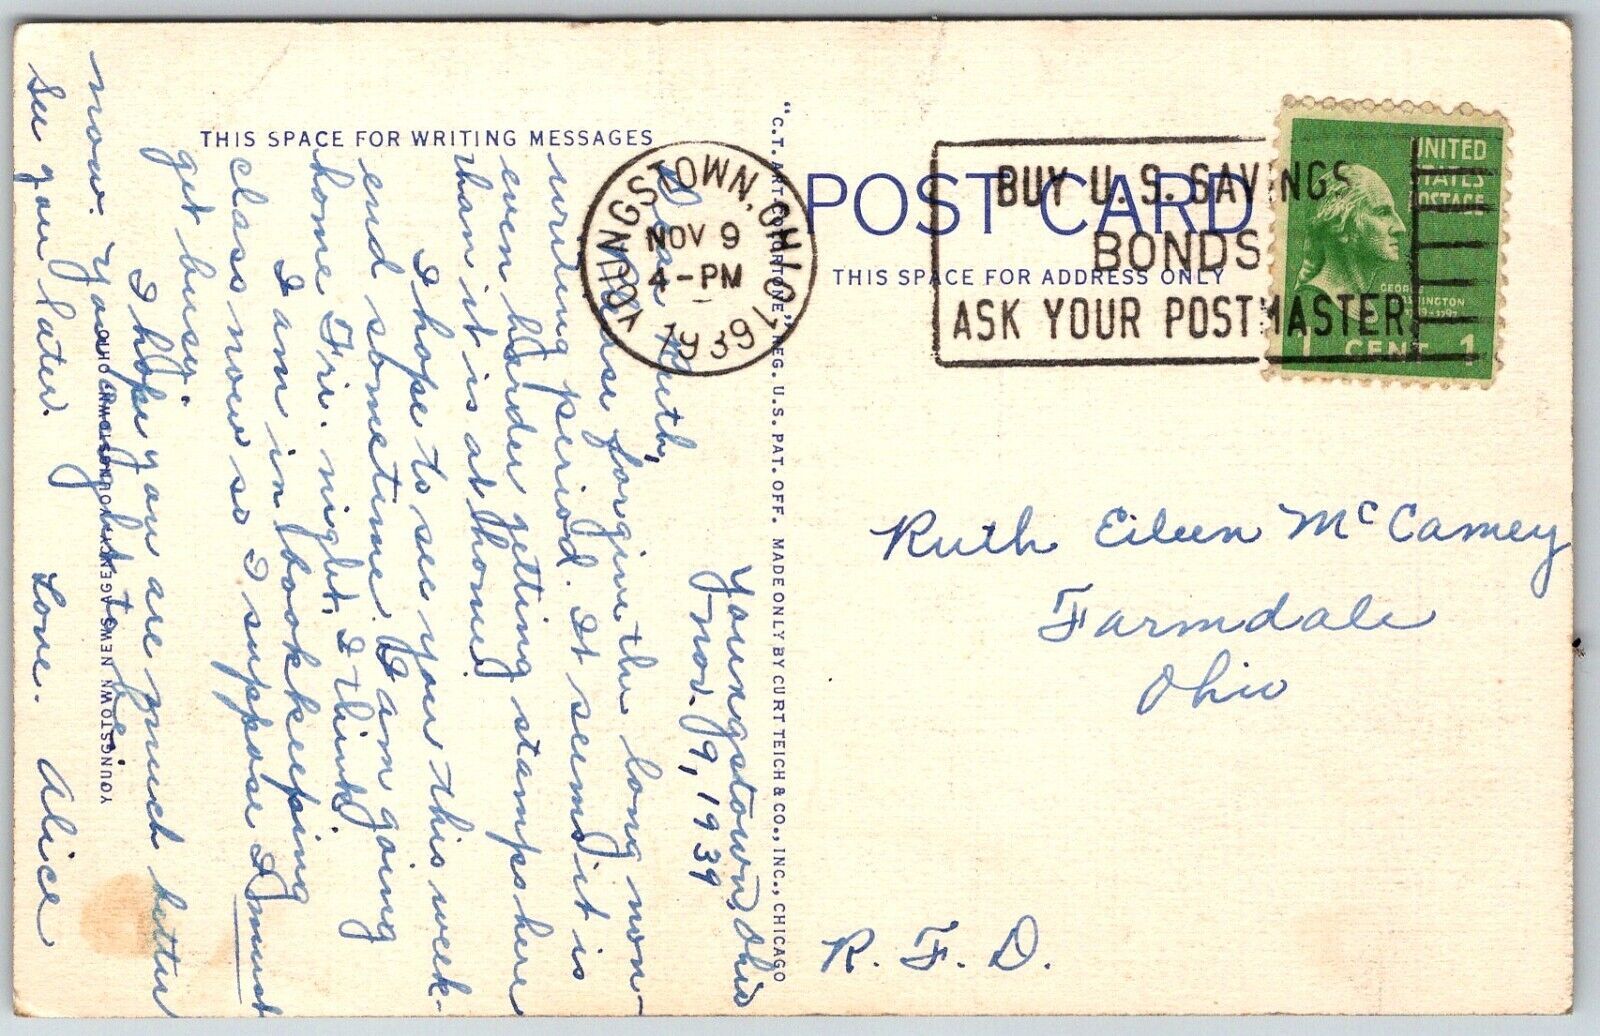 THIS SPACE FOR WRITING MESSAGES
POST CARD
THIS SPACE FOR ADDRESS ONLY
"C.T. ART-COLORTONE," REG. U.S. PAT. OFF. MADE ONLY BY CURT TEICH & CO., INC., CHICAGO
YOUNGSTOWN NEWS AGENCY, YOUNGSTOWN, OHIO
YOUNGSTOWN, OHIO 1
NOV 9
4-PM
1939
BUY U.S. SAVINGS
BONDS
ASK YOUR POSTMASTER
UNITED
STATES
POSTAGE
GEORGE
WASHINGTON
1789-1797
1 CENT 1
Youngstown, Ohio
Nov. 9, 1939
Dear Ruth,
Please forgive the long non-
writing period. It seems it is
even harder getting stamps here
than it is at home.
I hope to see you this week-
end sometime. I am going
home Fri. night, I think.
I am in bookkeeping
class now so I suppose I must
get busy.
I hope you are much better
now. You ought to be.
See you later. Love. Alice
Ruth Eileen McCamey
Farmdale
Ohio
R. F. D.